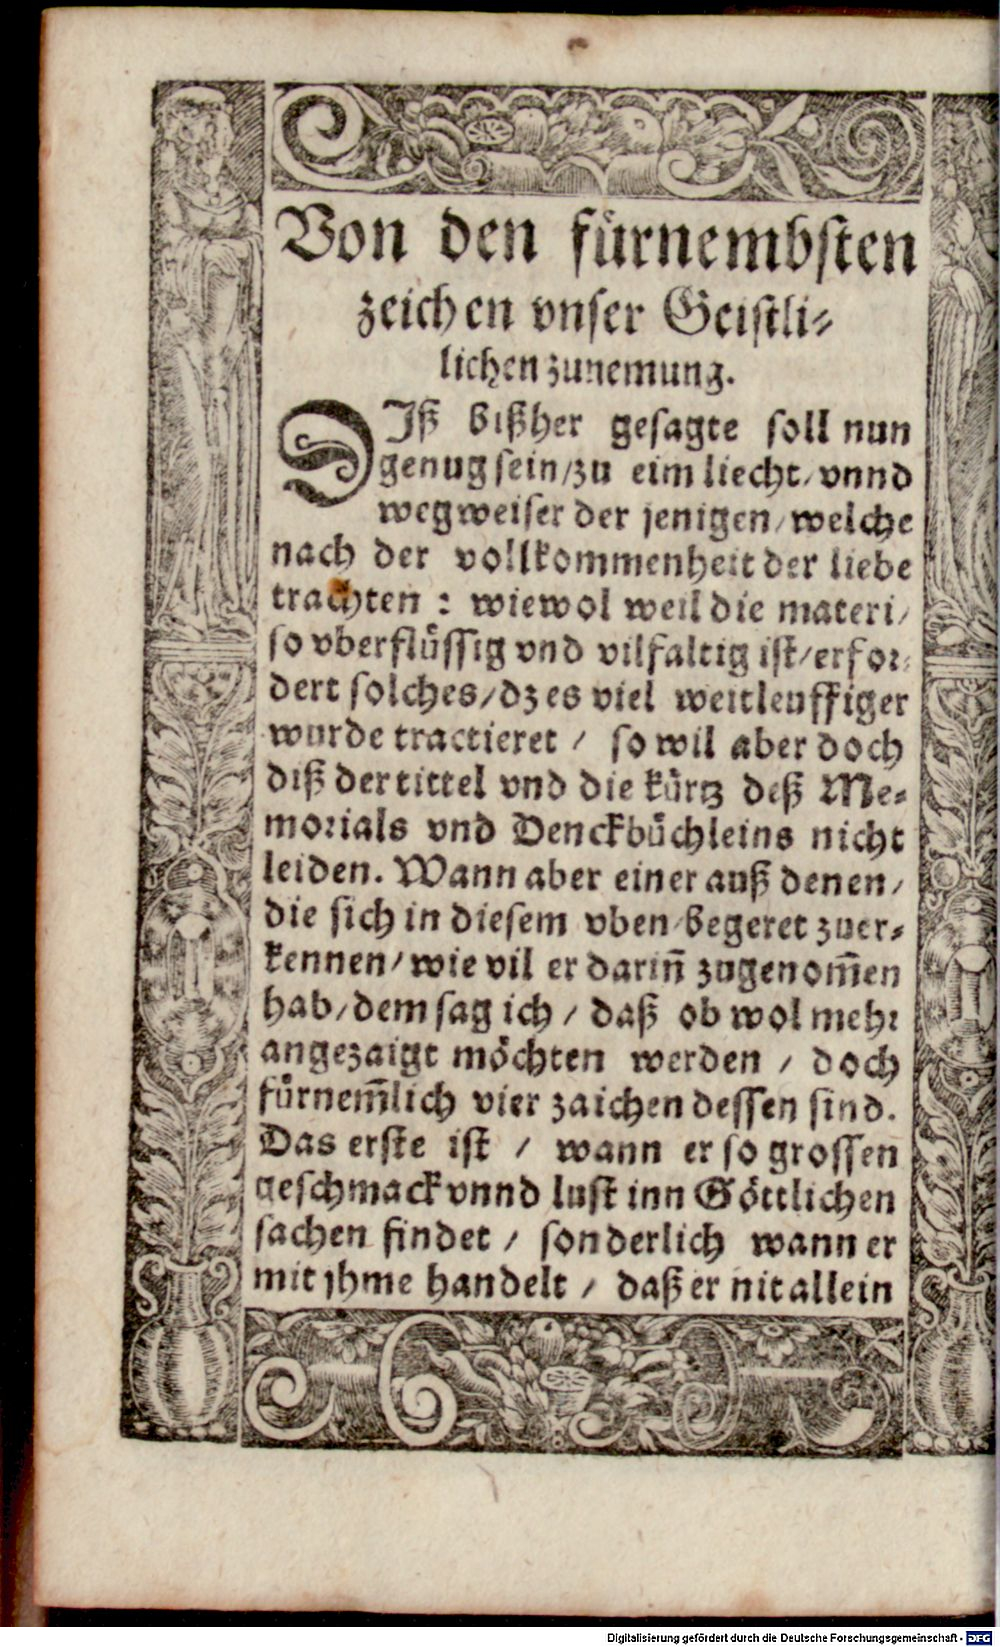 Von den fürnembsten
zeichen vnser Geistli⸗
lichen zunemung.
DIß bißher gesagte soll nun
genug sein/zu eim liecht/vnnd
wegweiser der jenigen/welche
nach der vollkommenheit der liebe
trachten : wiewol weil die materi/
so vberflüssig vnd vilfaltig ist/erfor⸗
dert solches/dz es viel weitleuffiger
wurde tractieret / so wil aber doch
diß der tittel vnd die kürtz deß Me⸗
morials vnd Denckbüchleins nicht
leiden. Wann aber einer auß denen/
die sich in diesem vben begeret zuer⸗
kennen/wie vil er dariñ zugenom̃en
hab/dem sag ich / daß ob wol mehr
angezaigt möchten werden / doch
fürnem̃lich vier zaichen dessen sind.
Das erste ist / wann er so grossen
geschmack vnnd lust inn Göttlichen
sachen findet / sonderlich wann er
mit jhme handelt / daß er nit allein
Digitalisierung gefördert durch die Deutsche Forschungsgemeinschaft - DFG